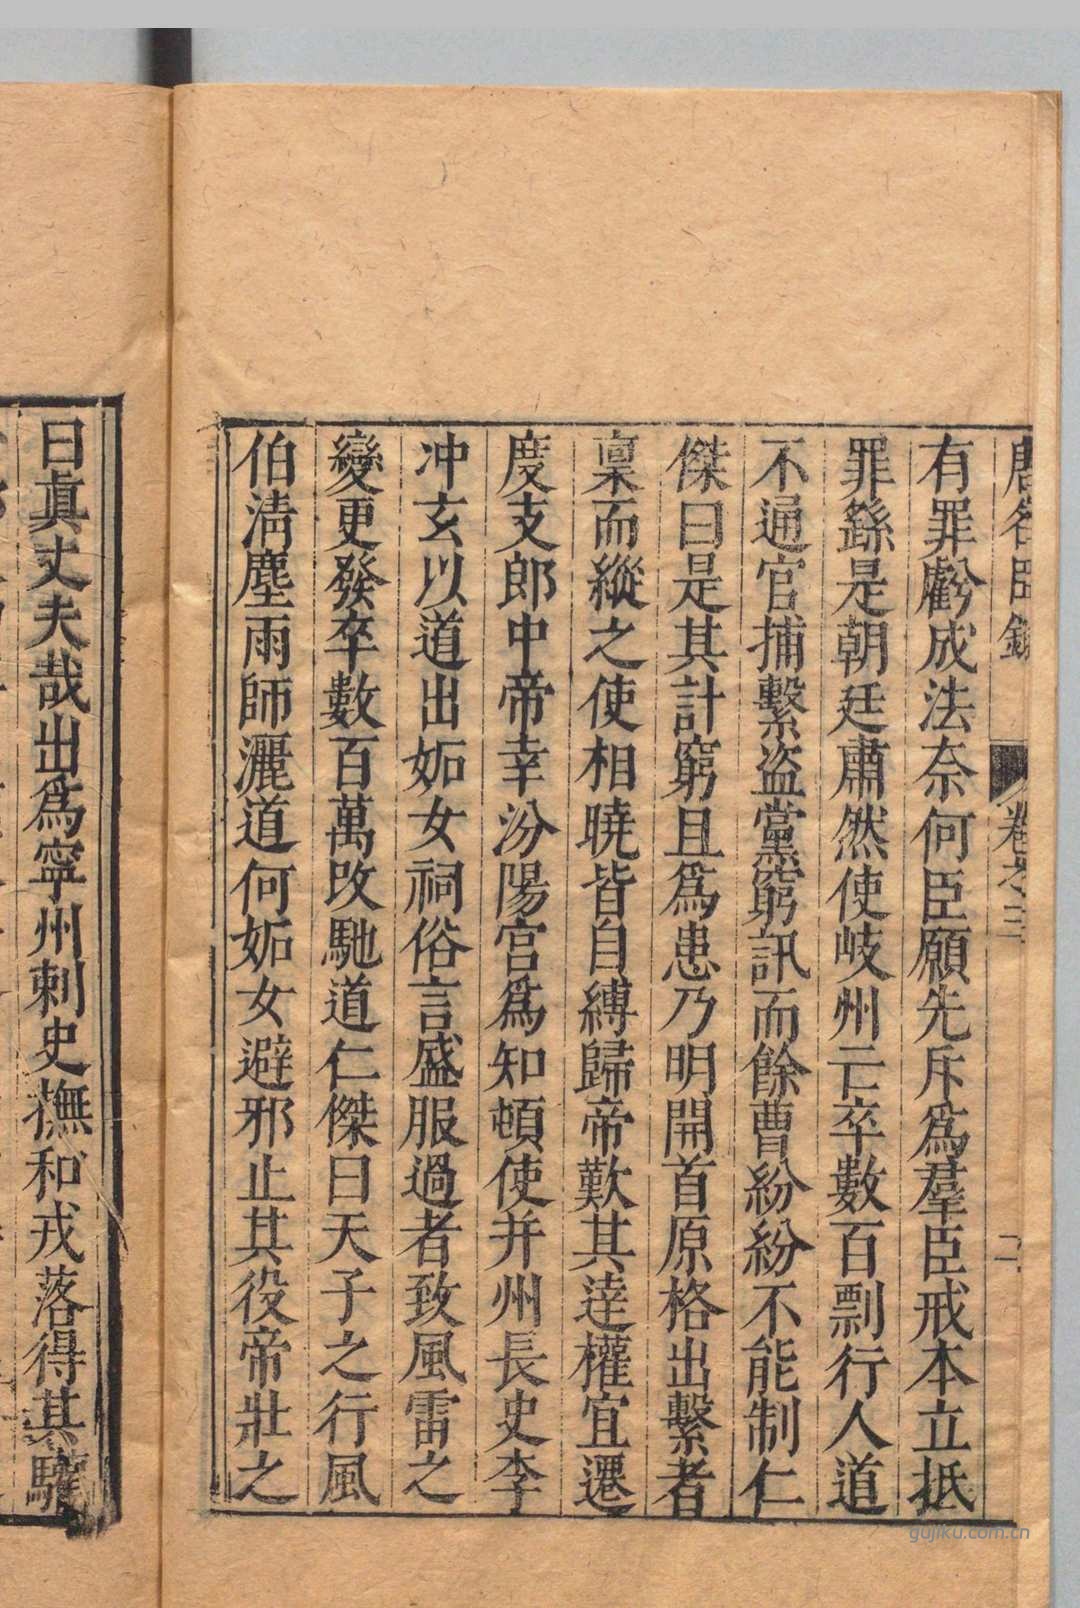 唐名臣錄 卷之三 二
有罪虧成法奈何臣願先斥爲羣臣戒本立抵
罪繇是朝廷肅然使岐州亡卒數百剽行人道
不通官捕繫盜黨窮訊而餘曹紛紛不能制仁
傑曰是其計窮且爲患乃明開首原格出繫者
稟而縱之使相曉皆自縛歸帝歎其達權宜遷
度支郎中帝幸汾陽宮爲知頓使并州長史李
冲玄以道出妬女祠俗言盛服過者致風雷之
變更發卒數百萬改馳道仁傑曰天子之行風
伯淸塵雨師灑道何妬女避邪止其役帝壯之
曰眞丈夫哉出爲寧州刺史撫和戎落得其驩
gujiku.com.cn